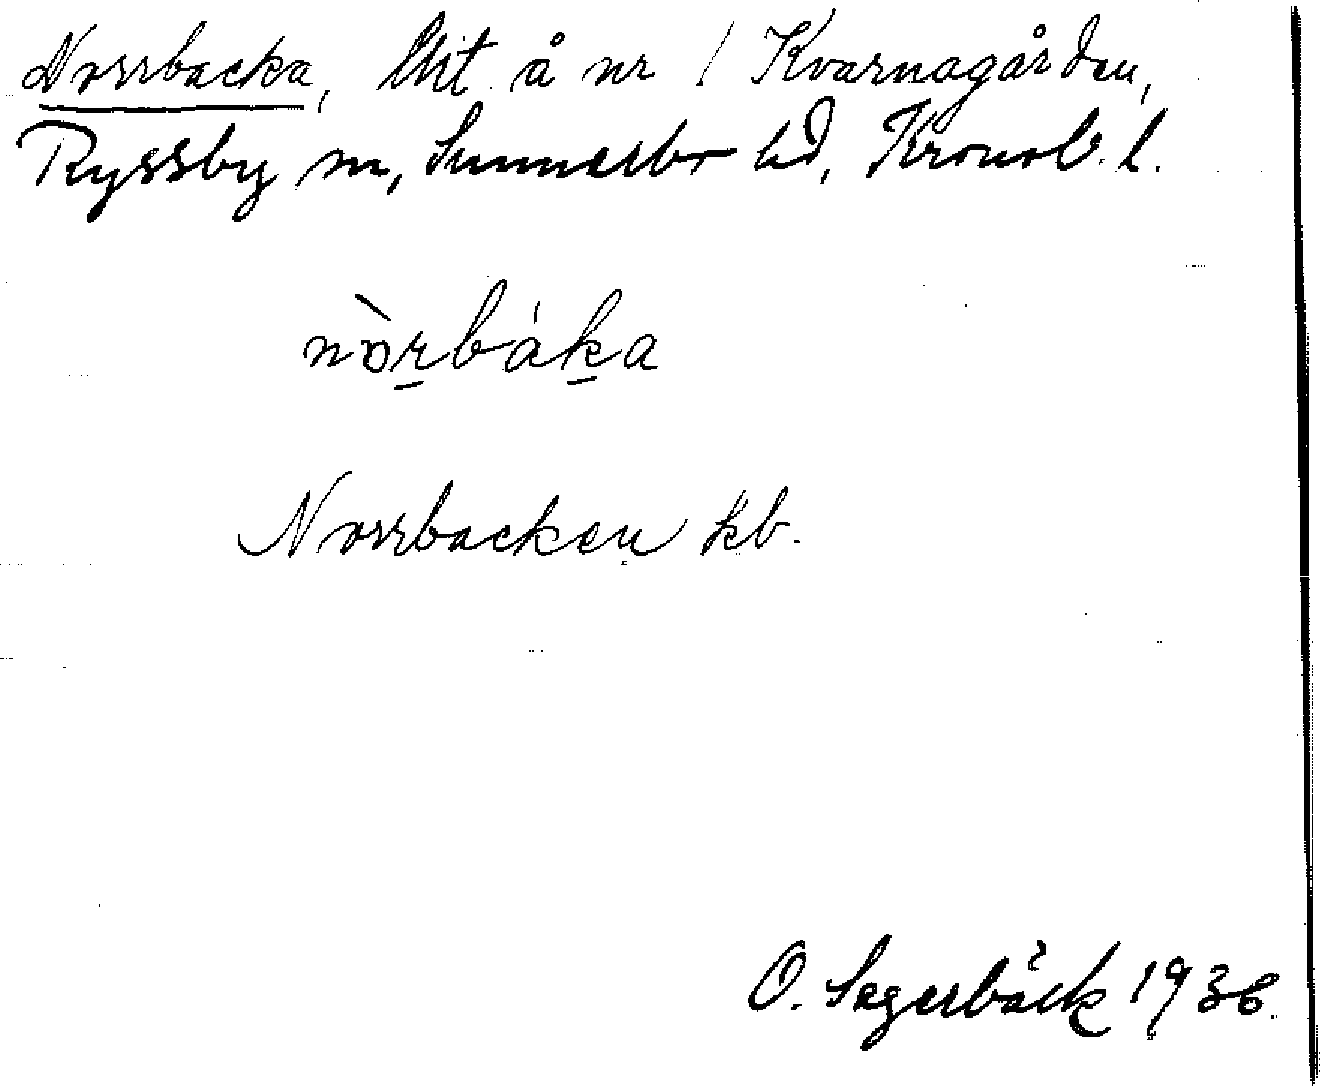 Norrbacka, Utit å nr 1 Kvarnagården,
Ryssby sn, Sunnerbo hd, Kronob. l.
nòr̲bák̲a
Norrbacken kb.
O. Segerbäck 1936